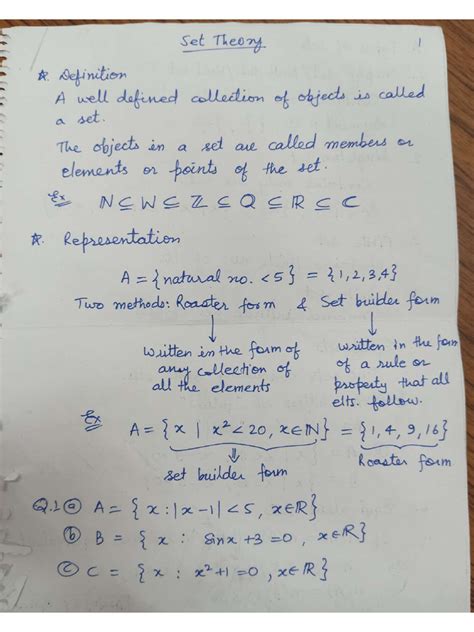 Set Theory
1
☆. Definition
A well defined collection of objects is called
a set.
The objects in a set are called members or
elements or points of the set.
Ex
ℕ ⊆ W ⊆ ℤ ⊆ Q ⊆ ℝ ⊆ C
☆. Representation
A = {natural no. < 5} = {1,2,3,4}
Two methods: Roaster form & Set builder form
↓ ↓
written in the form of
any collection of
all the elements
written in the form
of a rule or
property that all
elts. follow.
Ex
A = {x | x² < 20, x∈ℕ} = {1, 4, 9, 16}
⇓
set builder form
Roaster form
Q.1 ⓐ A = { x : |x-1| < 5, x∈ℝ}
ⓑ B = { x : sinx + 3 = 0, x∈ℝ}
ⓒ C = { x : x² + 1 = 0, x∈ℝ}